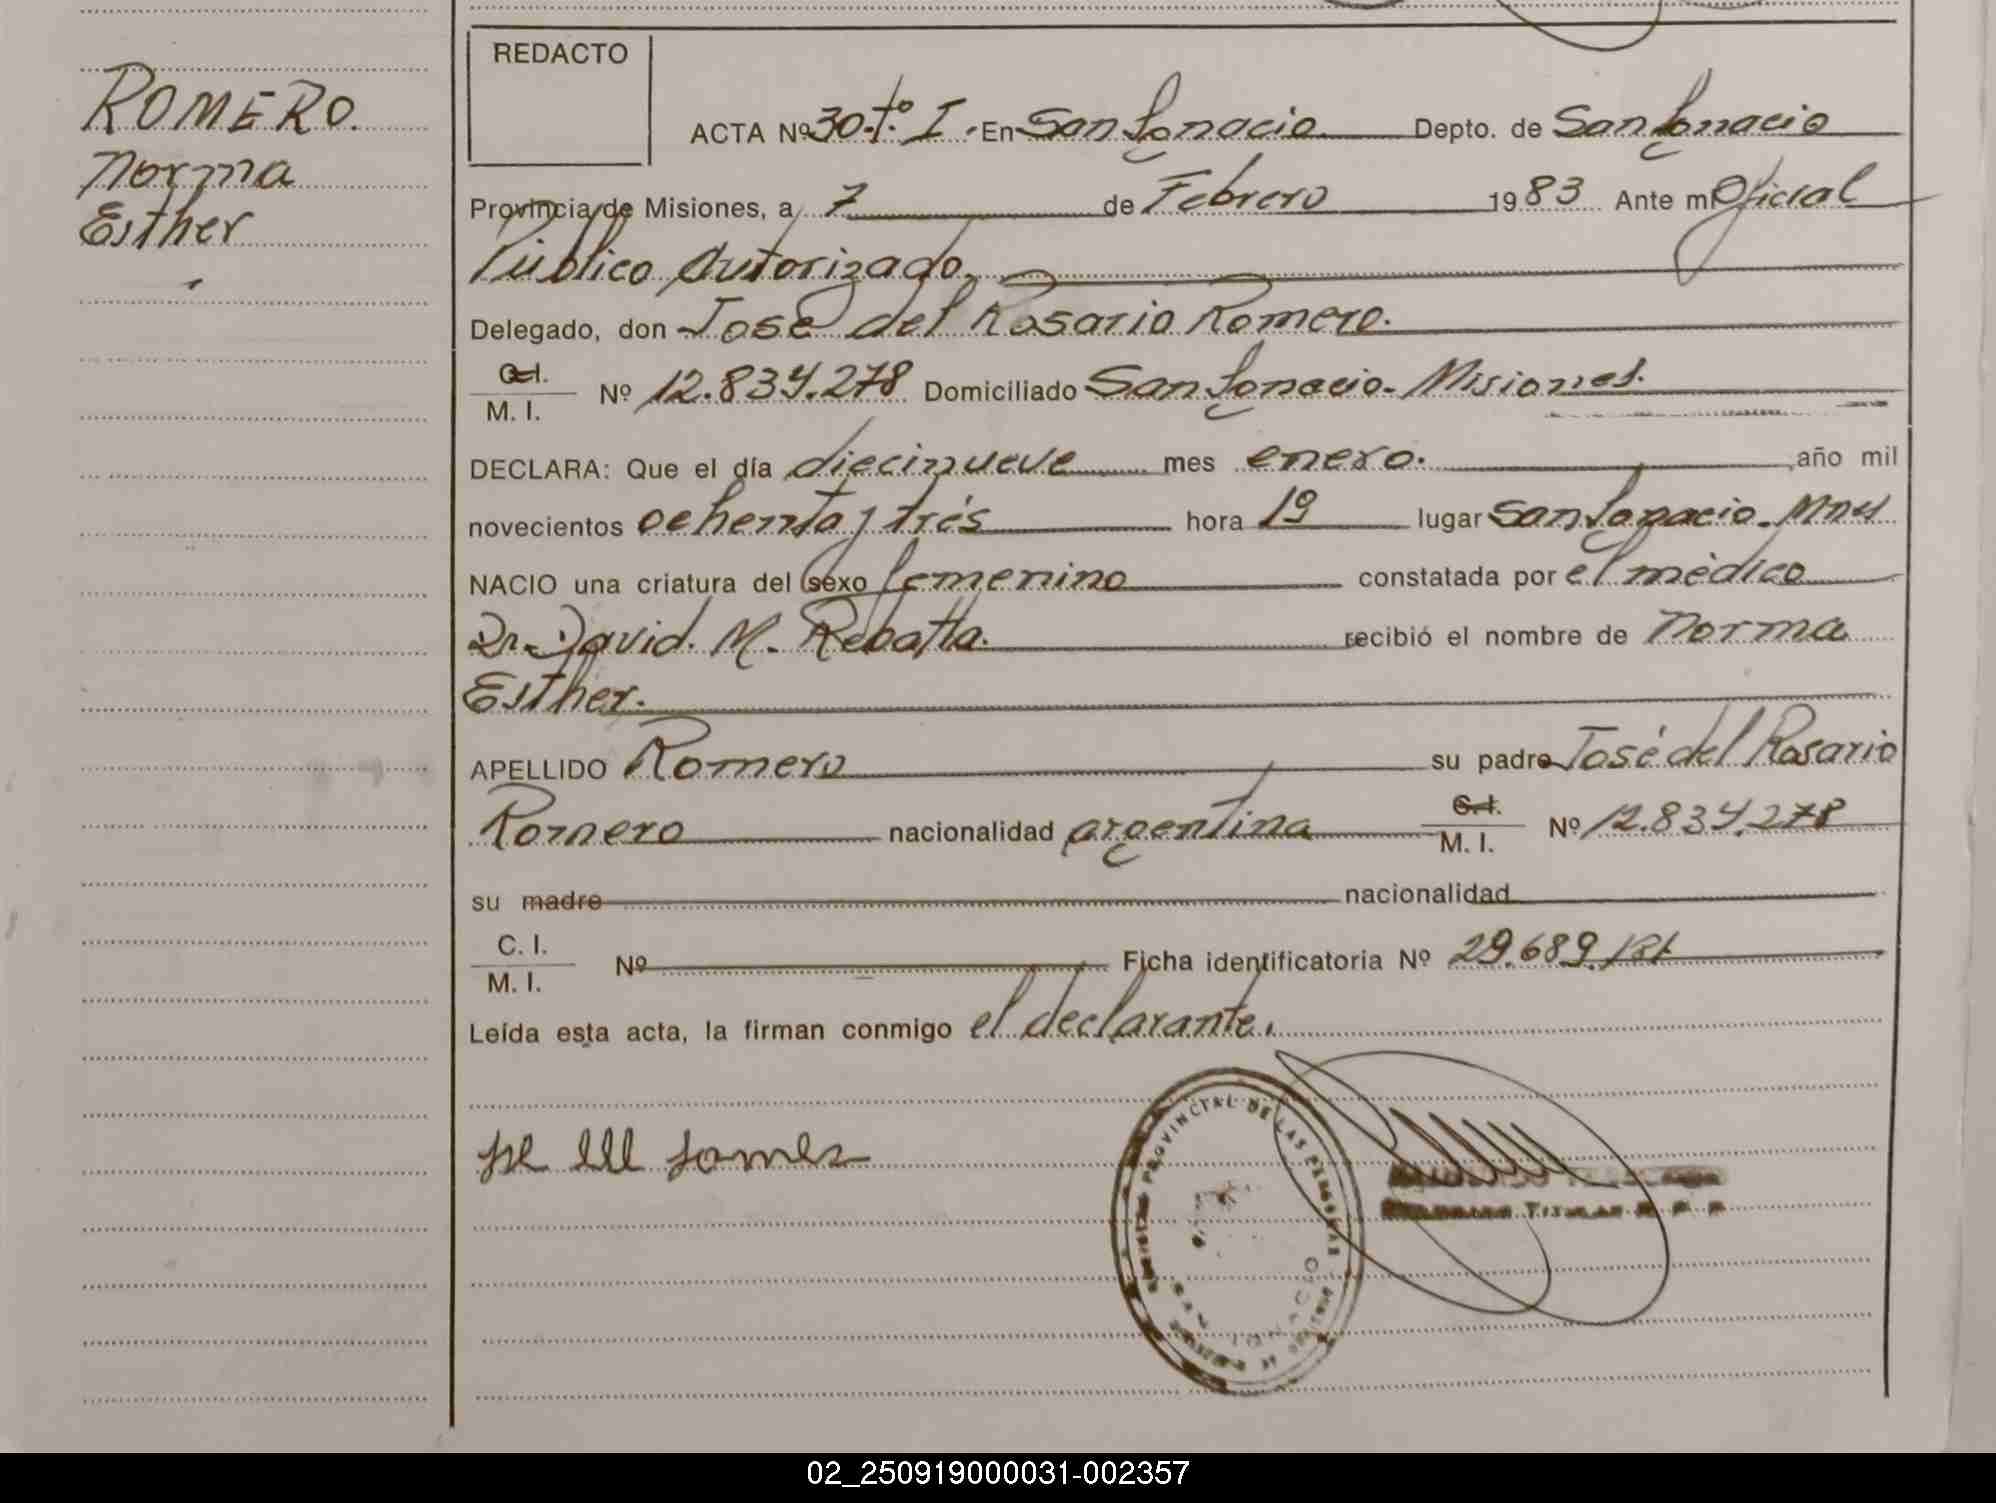 REDACTO
ROMERO.
Norma
Esther
ACTA Nº 30-tº I.- En San Ignacio Depto. de San Ignacio
Provincia de Misiones, a 7 de Febrero 1983 Ante mi Oficial
Público Autorizado.
Delegado, don José del Rosario Romero.
C.I.
M. I. Nº 12.834.278 Domiciliado San Ignacio- Misiones.
DECLARA: Que el día diecinueve mes enero. año mil
novecientos ochenta y trés hora 19 lugar San Ignacio- Mnes
NACIO una criatura del sexo femenino constatada por el médico
Dr. David. M. Rebatta. recibió el nombre de Norma
Esther.
APELLIDO Romero su padre José del Rosario
Romero nacionalidad argentina C.I.
M. I. Nº 12.834.278
su madre nacionalidad
C. I.
M. I. Nº Ficha identificatoria Nº 29.689.181
Leída esta acta, la firman conmigo el declarante.
PROVINCIAL DE LAS PERSONAS
SAN IGNACIO
TITULAR R P P
02_250919000031-002357